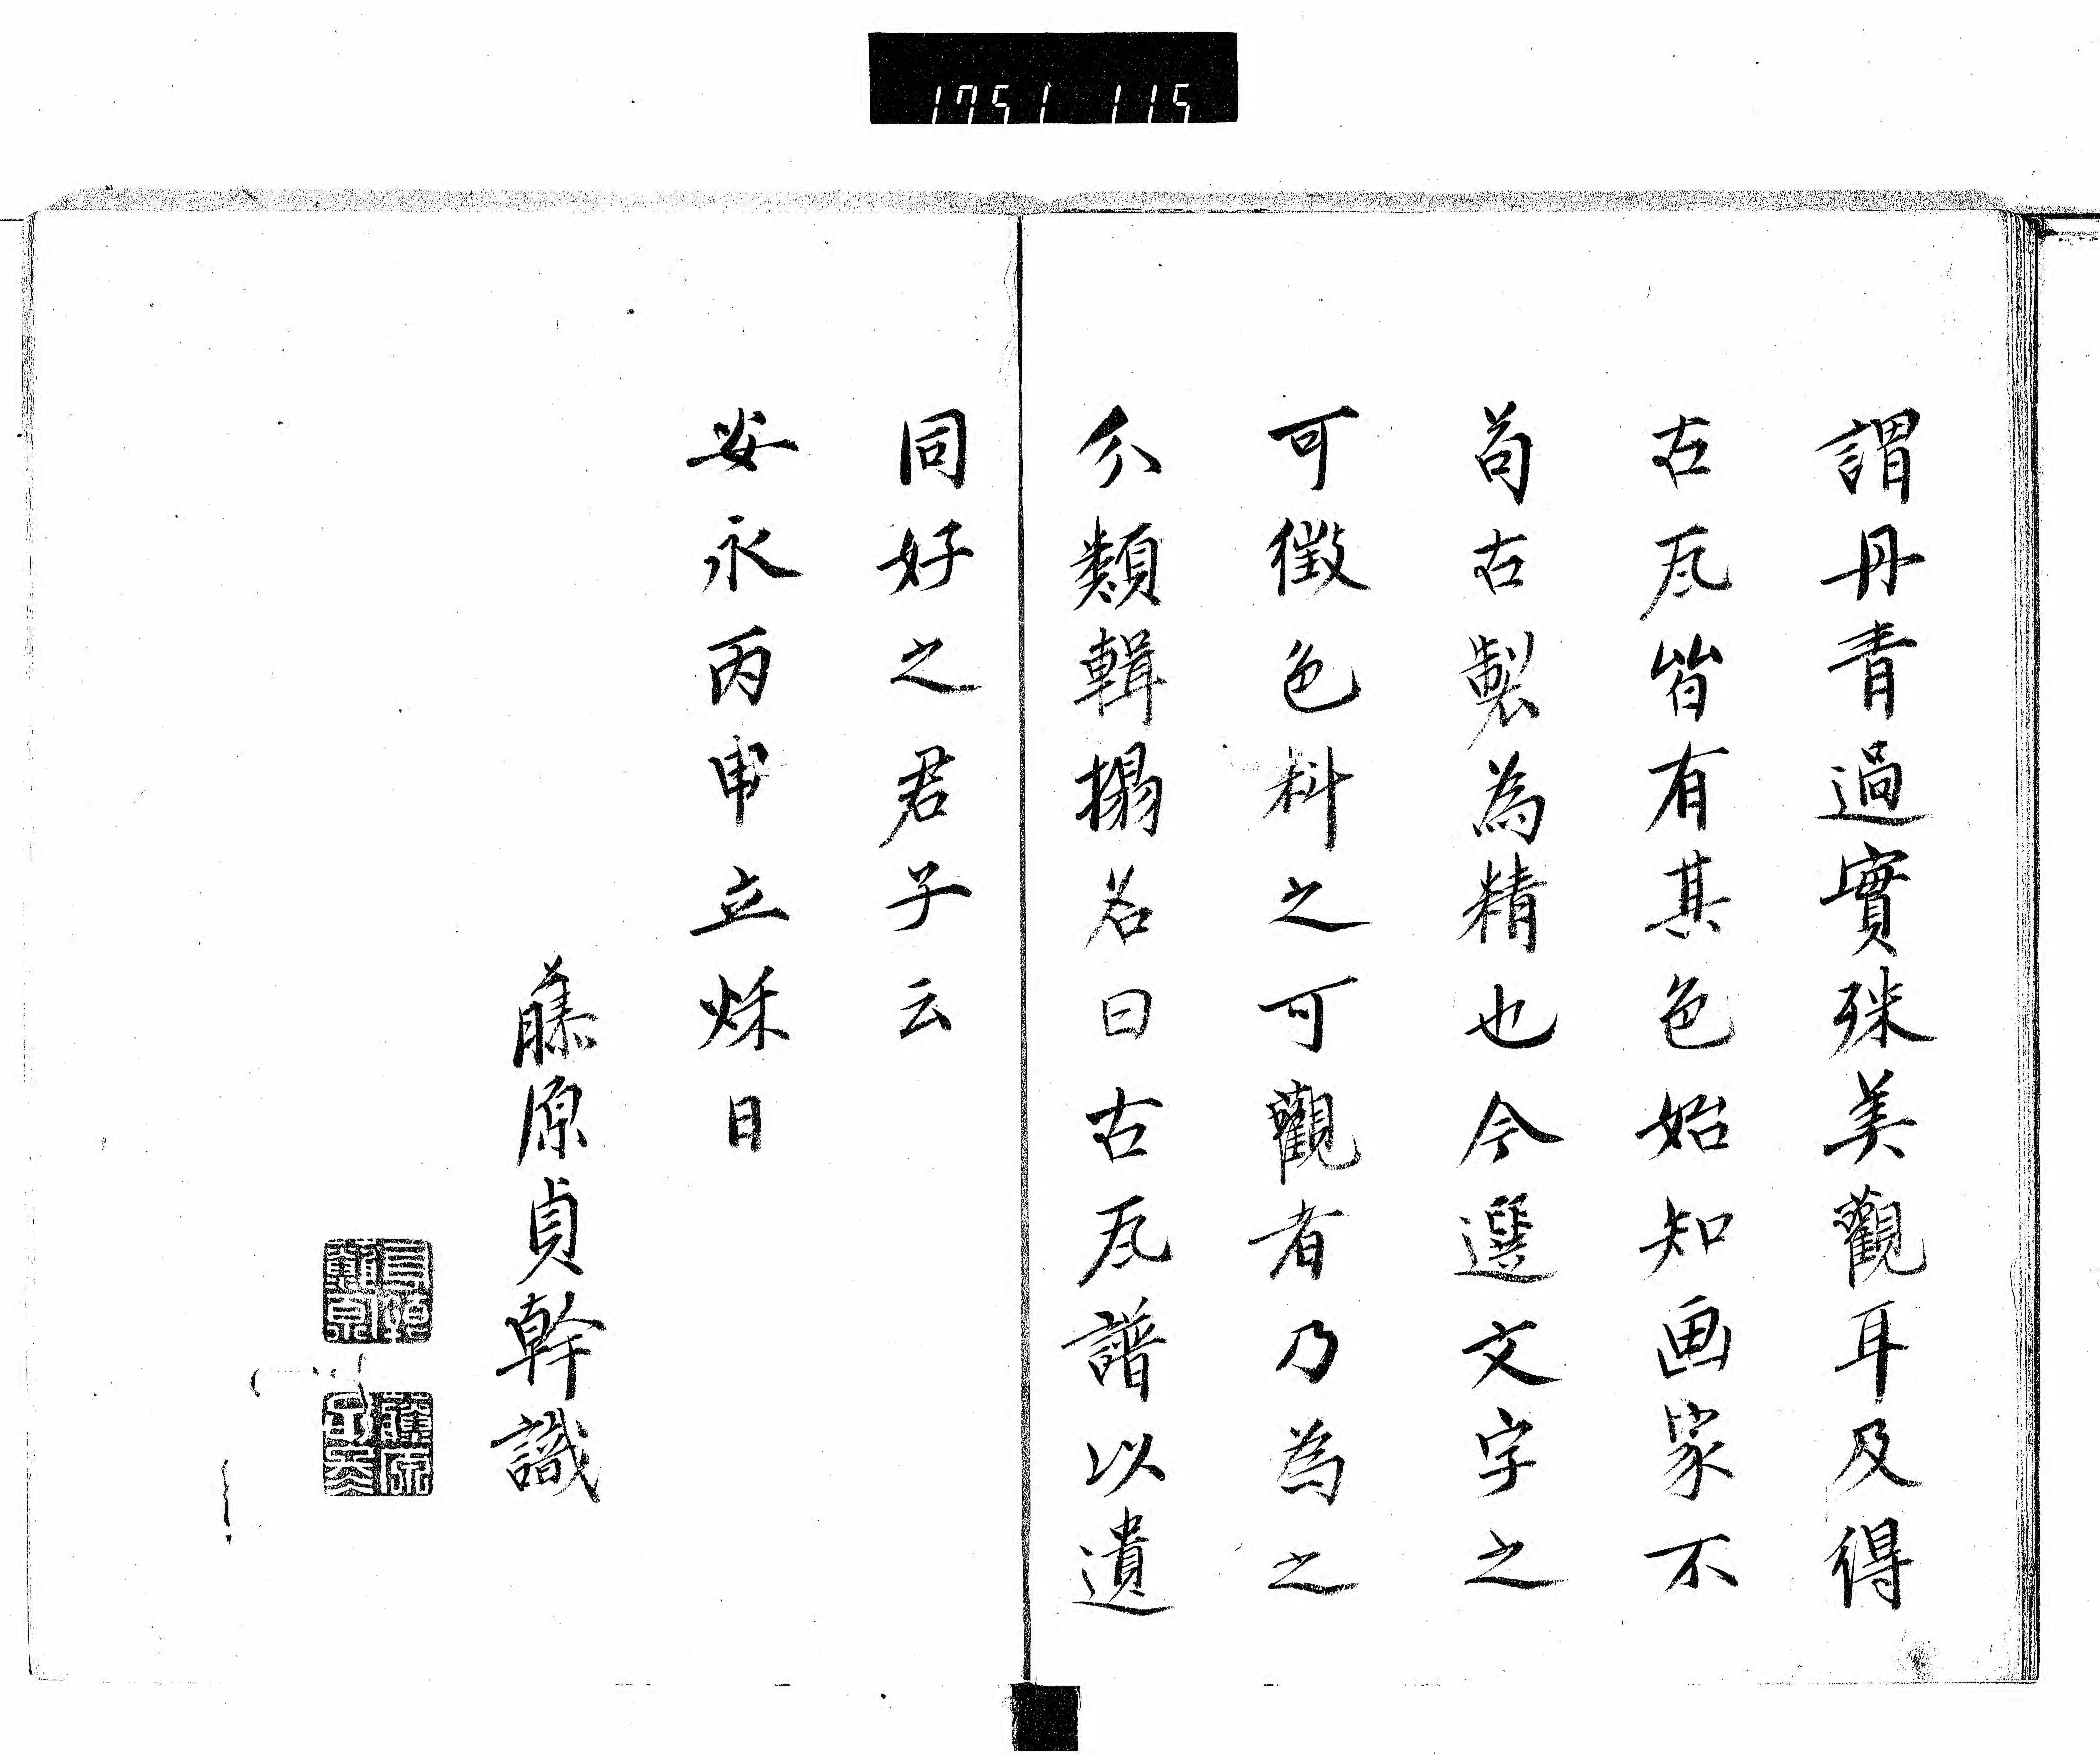 1751 115
謂丹青過實殊美觀耳及得
古瓦皆有其色始知画家不
苟古製為精也今選文字之
可徵色料之可觀者乃為之
分類輯搨名曰古瓦譜以遺
同好之君子云
安永丙申立秌日
藤原貞幹識
藤原